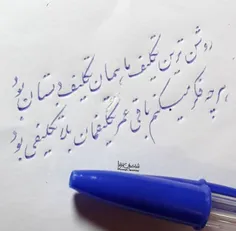 روشن ترین تکلیف ما همان تکلیف دبستان بود
هر چه فکر میکنم باقی عمر تکلیفمان بلاتکلیفی بود